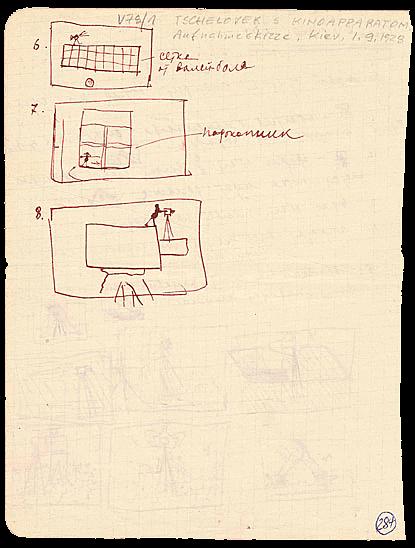 V78/1 TSCHELOVEK S KINOAPPARATOM
Aufnahmeskizze, Kiev, 1.9.1928
6.
сетка
волейбола
7.
подоконник
8.
284